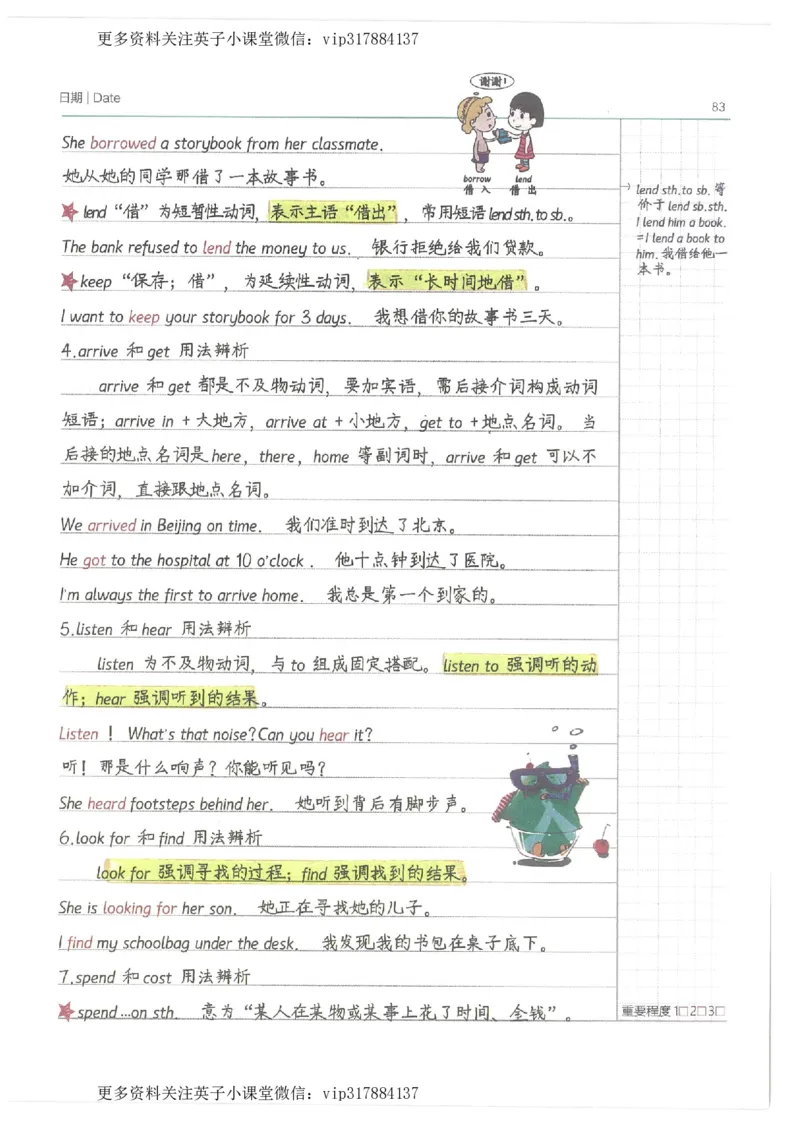 更多资料关注英子小课堂微信：vip317884137
日期 | Date
83
谢谢！
borrow
借 入
lend
借 出
She borrowed a storybook from her classmate.
她从她的同学那借了一本故事书。
lend “借”为短暂性动词，表示主语“借出”，常用短语lend sth. to sb.。
The bank refused to lend the money to us. 银行拒绝给我们贷款。
keep “保存；借”，为延续性动词，表示“长时间地借”。
I want to keep your storybook for 3 days. 我想借你的故事书三天。
→ lend sth. to sb. 等
价于 lend sb. sth.
I lend him a book.
=I lend a book to
him. 我借给他一
本书。
4.arrive 和 get 用法辨析
arrive 和 get 都是不及物动词，要加宾语，需后接介词构成动词
短语；arrive in + 大地方，arrive at + 小地方，get to + 地点名词。当
后接的地点名词是 here，there，home 等副词时，arrive 和 get 可以不
加介词，直接跟地点名词。
We arrived in Beijing on time. 我们准时到达了北京。
He got to the hospital at 10 o'clock . 他十点钟到达了医院。
I'm always the first to arrive home. 我总是第一个到家的。
5.listen 和 hear 用法辨析
listen 为不及物动词，与 to 组成固定搭配。listen to 强调听的动
作；hear 强调听到的结果。
Listen ！ What's that noise? Can you hear it?
听！那是什么响声？你能听见吗？
She heard footsteps behind her. 她听到背后有脚步声。
6.look for 和 find 用法辨析
look for 强调寻找的过程；find 强调找到的结果。
She is looking for her son. 她正在寻找她的儿子。
I find my schoolbag under the desk. 我发现我的书包在桌子底下。
7.spend 和 cost 用法辨析
spend ...on sth. 意为“某人在某物或某事上花了时间、金钱”。
重要程度 1□2□3□
更多资料关注英子小课堂微信：vip317884137